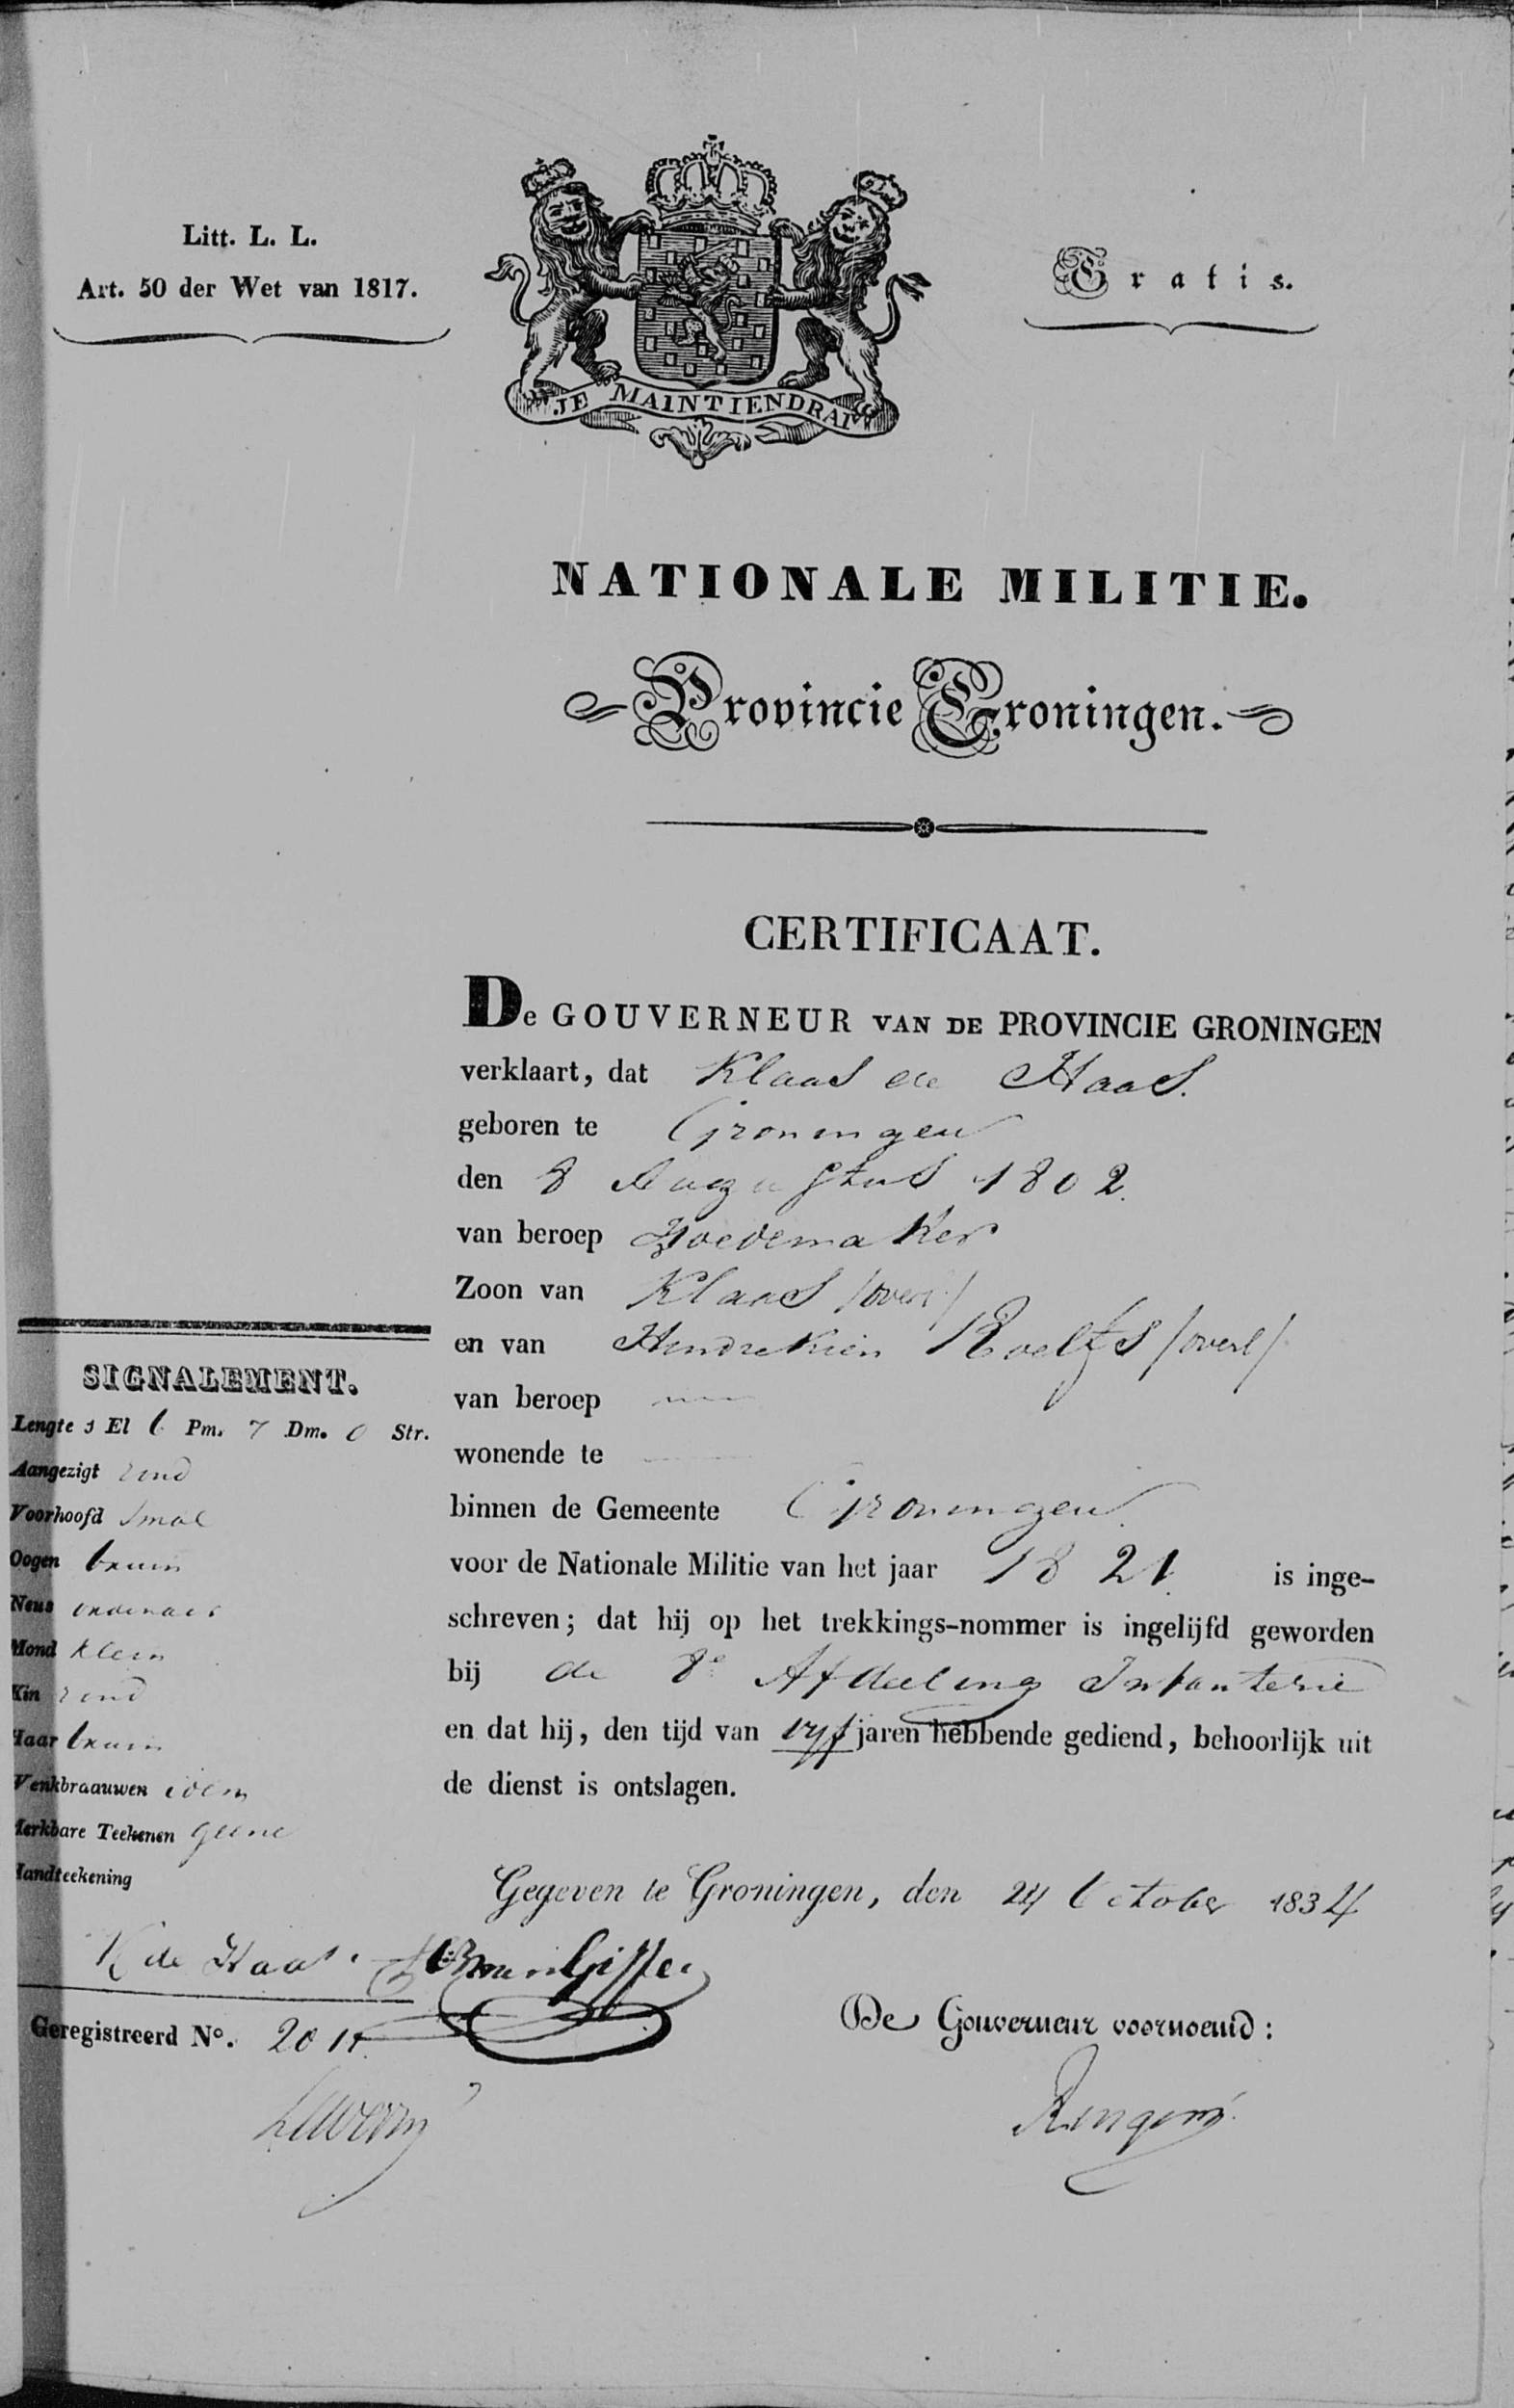 Litt. L. L.
Art. 50 der Wet van 1817.
Gratis.
JE MAINTIENDRAI
NATIONALE MILITIE.
Provincie Groningen.
CERTIFICAAT.
De GOUVERNEUR VAN DE PROVINCIE GRONINGEN
verklaart, dat Klaas de Haas.
geboren te Groningen
den 8 Augustus 1802.
van beroep Hoedemaker
Zoon van Klaas /overl/
en van Hendrekien Roelfs /overl/
van beroep
wonende te
binnen de Gemeente Groningen.
voor de Nationale Militie van het jaar 1821. is inge-
schreven; dat hij op het trekkings-nommer is ingelijfd geworden
bij de 8e Afdeeling Infanterie
en dat hij, den tijd van vyf jaren hebbende gediend, behoorlijk uit
de dienst is ontslagen.
Gegeven te Groningen, den 24 October 1834
De Gouverneur voornoemd:
SIGNALEMENT.
Lengte 1 El 6 Pm. 7 Dm. 0 Str.
Aangezigt rond
Voorhoofd smal
Oogen bruin
Neus ordinair
Mond klein
Kin rond
Haar bruin
Wenkbraauwen idem
Merkbare Teekenen geene
Handteekening
K de Haas.
Geregistreerd No.